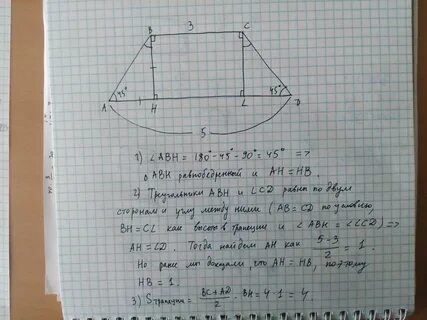 B 3 C
45° 45°
A H L D
5
1) ∠ABH = 180° - 45° - 90° = 45° =>
△ ABH равнобедренный и AH = HB.
2) Треугольники ABH и LCD равны по двум
сторонам и углу между ними (AB = CD по условию,
BH = CL как высоты в трапеции и ∠ABH = ∠LCD) =>
AH = LD. Тогда найдем AH как 5-3/2 = 1.
Но ранее мы доказали, что AH = HB, поэтому
HB = 1.
3) Sтрапеции = BC+AD/2 · BH = 4 · 1 = 4.